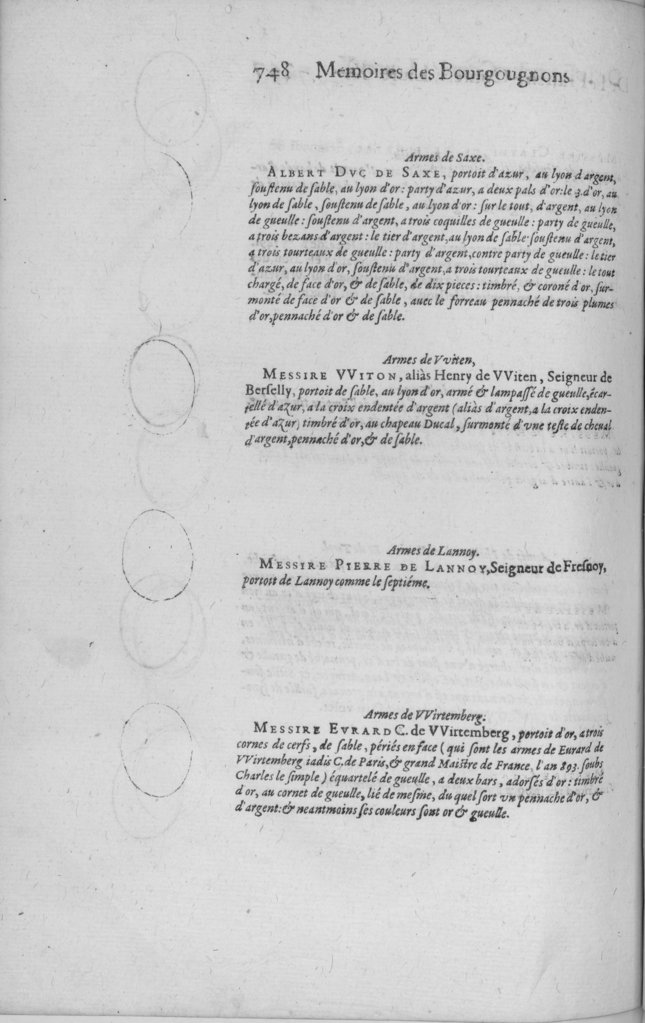 748 Memoires des Bourgougnons
Armes de Saxe.
ALBERT DVC DE SAXE, portoit d'azur, au lyon d'argent,
soustenu de sable, au lyon d'or: party d'azur, a deux pals d'or: le 3. d'or, au
lyon de sable, soustenu de sable, au lyon d'or: sur le tout, d'argent, au lyon
de gueulle: soustenu d'argent, a trois coquilles de gueulle: party de gueulle,
a trois bezans d'argent: le tier d'argent, au lyon de sable: soustenu d'argent,
a trois tourteaux de gueulle: party d'argent, contre party de gueulle: le tier
d'azur, au lyon d'or, soustenu d'argent, a trois tourteaux de gueulle: le tout
chargé, de face d'or, & de sable, de dix pieces: timbré, & coroné d'or, sur-
monté de face d'or & de sable, auec le forreau pennaché de trois plumes
d'or, pennaché d'or & de sable.
Armes de Vviten,
MESSIRE VVITON, aliàs Henry de VViten, Seigneur de
Berselly, portoit de sable, au lyon d'or, armé & lampassé de gueulle, écar-
tellé d'azur, a la croix endentée d'argent (aliàs d'argent, a la croix enden-
tée d'azur) timbré d'or, au chapeau Ducal, surmonté d'vne teste de cheual
d'argent, pennaché d'or, & de sable.
Armes de Lannoy.
MESSIRE PIERRE DE LANNOY, Seigneur de Fresnoy,
portoit de Lannoy comme le septiéme.
Armes de VVirtemberg.
MESSIRE EVRARD C. de VVirtemberg, portoit d'or, a trois
cornes de cerfs, de sable, périés en face (qui sont les armes de Eurard de
VVirtemberg iadis C. de Paris, & grand Maistre de France, l'an 893. soubs
Charles le simple) équartelé de gueulle, a deux bars, adorsés d'or: timbré
d'or, au cornet de gueulle, lié de mesme, du quel sort vn pennache d'or, &
d'argent: & neantmoins ses couleurs sont or & gueulle.